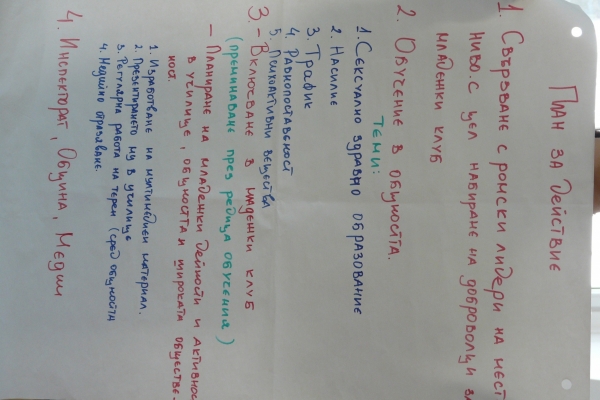 План за действие
1. Свързване с ромски лидери на мест
ниво. с цел набиране на доброволци за
младежки клуб
2. Обучение в общността.
теми:
1. Сексуално здравно образование
2. Насилие
3. Трафик
4. Равнопоставеност
5. Психоактивни вещества
3. - Включване в младежки клуб
(преминаване през редица обучения)
- Планиране на младежки дейности и активнос
в училище, общността и широката обществе-
ност.
1. Изработване на мултимедиен материал.
2. Презентирането му в училище
3. Регулярна работа на терен (сред общността
4. Медийно отразяване.
4. Инспекторат, Община, Медии